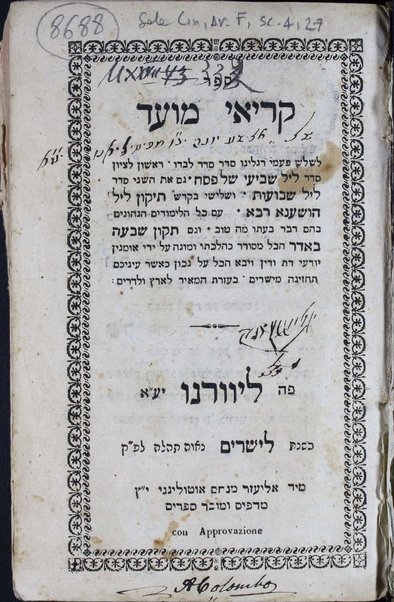 8688
Sala Cin, Ar. F, Sc. 4, 27
ספר
קריאי מועד
לשלש פעמי רגליגו סדר סדר לבדו ׃ ראשון לציון
סדר ליל שביעי של פסח ׃ גם את השני סדר
ליל שבועות ׃ ושלישי בקדש תיקון ליל
הושענא רבא ׃ עם כל הלימודים הנהוגים
בהם דבר בעתו מה טוב ׃ וגם תקון שבעה
באדר הכל מסודר כהלכתו ומוגה על ידי אומנין
יודעי דת ודין ויבא הכל על נכון כאשר עיניכם
תחזינה מישרים ׃ בעזרת המאיר לארץ ולדרים ׃
פה ליוורנו יע״א
בשנת לישרים נאוה תהלה לפ״ק
מיד אליעזר מנחם אוטולינגי י״ץ
מדפיס ומוכר ספרים
con Approvazione
A Colombo